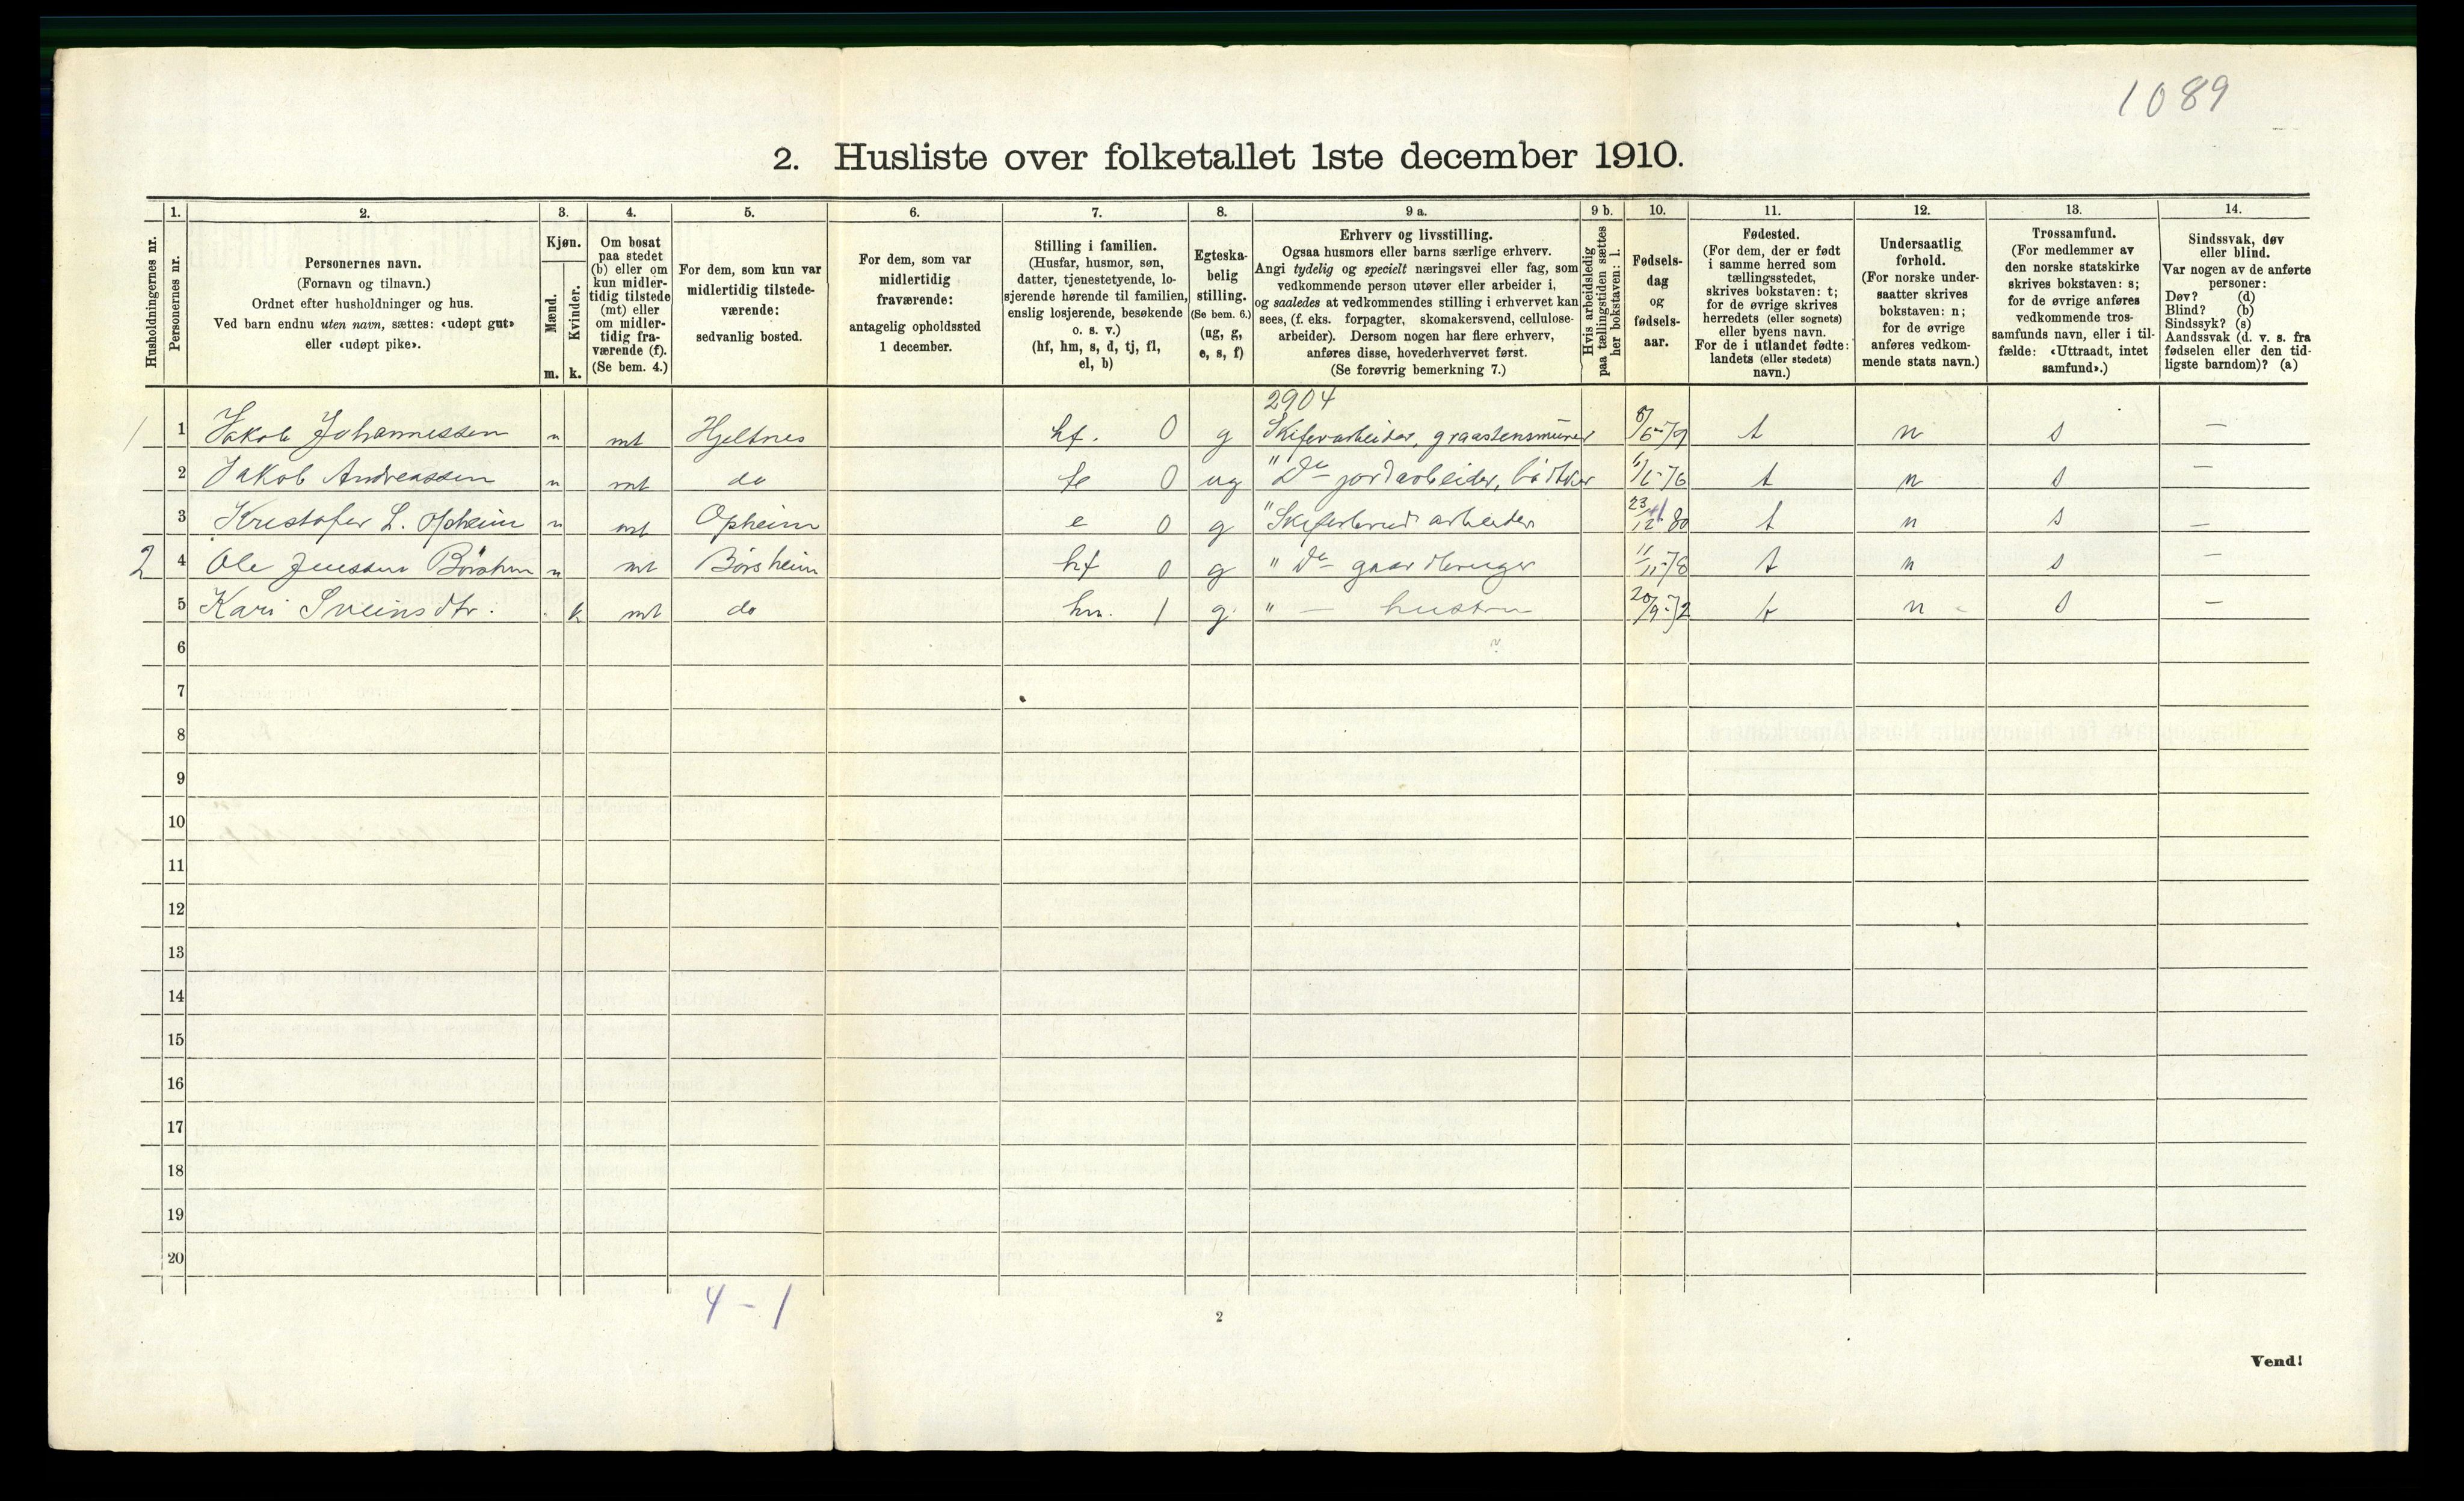 1089
2. Husliste over folketallet 1ste december 1910.
Husholdningernes nr.
1. Personernes nr.
2. Personernes navn.
(Fornavn og tilnavn.)
Ordnet efter husholdninger og hus.
Ved barn endnu uten navn, sættes: «udøpt gut»
eller «udøpt pike».
3. Kjøn.
Mænd. m.
Kvinder. k.
4. Om bosat
paa stedet
(b) eller om
kun midler-
tidig tilstede
(mt) eller
om midler-
tidig fra-
værende (f).
(Se bem. 4.)
5. For dem, som kun var
midlertidig tilstede-
værende:
sedvanlig bosted.
6. For dem, som var
midlertidig
fraværende:
antagelig opholdssted
1 december.
7. Stilling i familien.
(Husfar, husmor, søn,
datter, tjenestetyende, lo-
sjerende hørende til familien,
enslig losjerende, besøkende
o. s. v.)
(hf, hm, s, d, tj, fl,
el, b)
8. Egteska-
belig
stilling.
(Se bem. 6.)
(ug, g,
e, s, f)
9 a. Erhverv og livsstilling.
Ogsaa husmors eller barns særlige erhverv.
Angi tydelig og specielt næringsvei eller fag, som
vedkommende person utøver eller arbeider i,
og saaledes at vedkommendes stilling i erhvervet kan
sees, (f. eks. forpagter, skomakersvend, cellulose-
arbeider). Dersom nogen har flere erhverv,
anføres disse, hovederhvervet først.
(Se forøvrig bemerkning 7.)
9 b. Hvis arbeidsledig
paa tællingstiden sættes
her bokstaven: l.
10. Fødsels-
dag
og
fødsels-
aar.
11. Fødested.
(For dem, der er født
i samme herred som
tællingsstedet,
skrives bokstaven: t;
for de øvrige skrives
herredets (eller sognets)
eller byens navn.
For de i utlandet fødte:
landets (eller stedets)
navn.)
12. Undersaatlig
forhold.
(For norske under-
saatter skrives
bokstaven: n;
for de øvrige
anføres vedkom-
mende stats navn.)
13. Trossamfund.
(For medlemmer av
den norske statskirke
skrives bokstaven: s;
for de øvrige anføres
vedkommende tros-
samfunds navn, eller i til-
fælde: «Uttraadt, intet
samfund».)
14. Sindssvak, døv
eller blind.
Var nogen av de anførte
personer:
Døv? (d)
Blind? (b)
Sindssyk? (s)
Aandssvak (d. v. s. fra
fødselen eller den tid-
ligste barndom)? (a)
2904
1 1 Jakob Johannessen m mt Hjeltnes hf. 0 g Skiferarbeider, graastensmurer 8/6-79 t n s —
2 Jakob Andreassen m mt do 0 ug " Do jordarbeider, bødtker t n s —
3 Kristofer L. Opheim m mt Opheim e 0 g "Skiferbrud arbeider 23/12 80 t n s —
2 4 Ole Jenssen m mt Børsheim hf 0 g " Do gaardbruger 11/11-78 t n s —
5 Kari Sveinsdtr. k mt do hm. 1 g. " — hustru 20/9-72 t n s —
6
7
8
9
10
11
12
13
14
15
16
17
18
19
20
4 - 1
2
Vend!